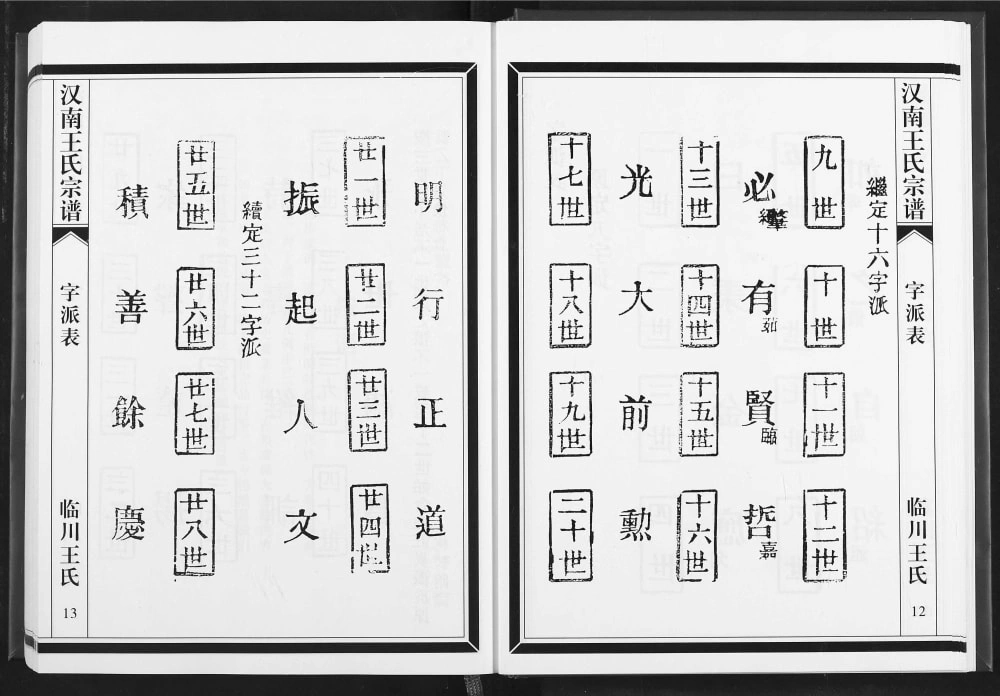 汉南王氏宗谱
字派表
临川王氏
12
繼定十六字派
九世
十世
十一世
十二世
必
有
茹
賢
哲
嘉
十三世
十四世
十五世
十六世
光
大
前
勲
十七世
十八世
十九世
二十世
明
行
正
道
廿一世
廿二世
廿三世
廿四世
振
起
人
文
續定三十二字派
廿五世
廿六世
廿七世
廿八世
積
善
餘
慶
汉南王氏宗谱
字派表
临川王氏
13